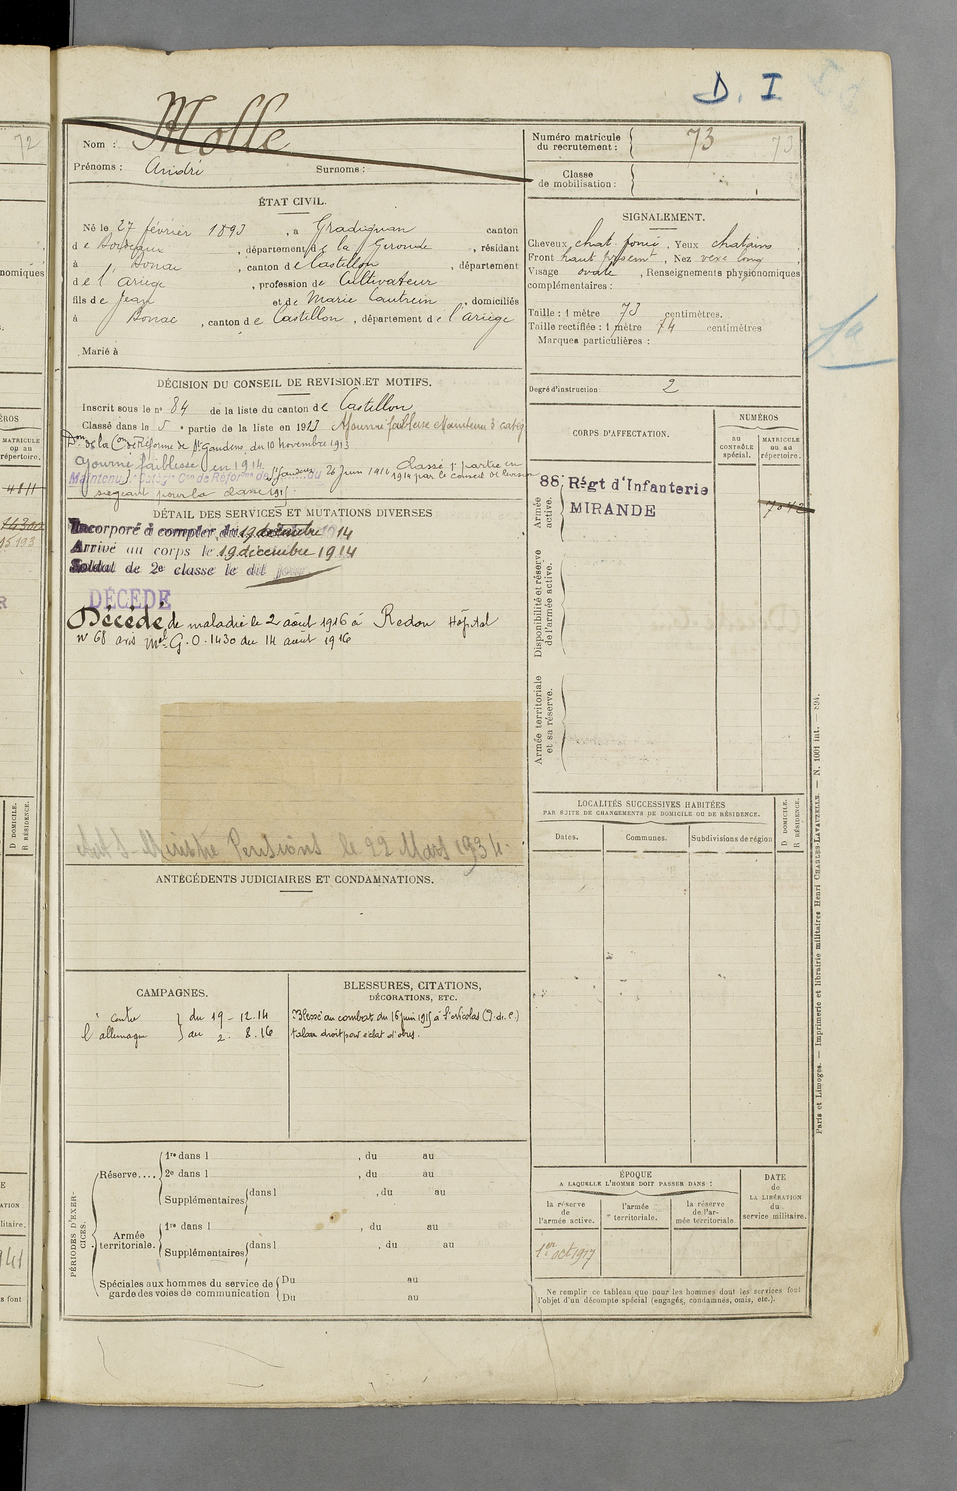 D. I
Nom : Molle
Prénoms : André Surnoms :
Numéro matricule du recrutement : 73 73
Classe de mobilisation :
ÉTAT CIVIL.
Né le 27 février 1893, à Gradignan canton
de Bordeaux, département de la Gironde, résidant
à Bonac, canton de Castillon, département
de l'Ariège, profession de Cultivateur
fils de Jean et de Marie Cautrein, domiciliés
à Bonac, canton de Castillon, département de l'Ariège
Marié à
SIGNALEMENT.
Cheveux chat. foncé, Yeux chatains
Front haut, Nez vexe long
Visage ovale, Renseignements physionomiques
complémentaires :
Taille : 1 mètre 73 centimètres.
Taille rectifiée : 1 mètre 74 centimètres
Marques particulières :
Degré d'instruction : 2
DÉCISION DU CONSEIL DE REVISION ET MOTIFS.
Inscrit sous le n° 84 de la liste du canton de Castillon
Classé dans le 5e partie de la liste en 1913 Ajourné faiblesse Maintenu 3 catég
Don de la Con de Réforme de St Gaudens, du 10 novembre 1913
Ajourné faiblesse en 1914. Classé 1e partie en
St Gaudens 26 Juin 1914 1914 par le conseil de
siégeant pour la classe 1915
DÉTAIL DES SERVICES ET MUTATIONS DIVERSES
Incorporé à compter du 19 décembre 1914
Arrivé au corps le 19 décembre 1914
Soldat de 2e classe le dit jour
DÉCÉDÉ
Décédé, de maladie le 2 août 1916 à Redon Hôpital
n° 68 avis Mel G.O. 1430 du 14 août 1916
Ministre Pensions le 22 Mars 1934
CORPS D'AFFECTATION.
NUMÉROS
AU CONTRÔLE spécial.
MATRICULE ou au répertoire.
Armée active.
88e Régt d'Infanterie
MIRANDE
7042
Disponibilité et réserve de l'armée active.
Armée territoriale et sa réserve.
LOCALITÉS SUCCESSIVES HABITÉES
PAR SUITE DE CHANGEMENTS DE DOMICILE OU DE RÉSIDENCE.
Dates. Communes. Subdivisions de région D DOMICILE. R RÉSIDENCE.
ANTÉCÉDENTS JUDICIAIRES ET CONDAMNATIONS.
CAMPAGNES.
contre l'allemagne
du 19 - 12. 14
au 2. 8. 16
BLESSURES, CITATIONS,
DÉCORATIONS, ETC.
Blessé au combat du 16 juin 1915 à St Nicolas (P. de C.)
talon droit par éclat d'obus.
PÉRIODES D'EXERCICES.
Réserve.... 1re dans l , du au
2e dans l , du au
Supplémentaires dans l , du au
Armée territoriale. 1re dans l , du au
Supplémentaires dans l , du au
Spéciales aux hommes du service de garde des voies de communication Du au
Du au
ÉPOQUE
A LAQUELLE L'HOMME DOIT PASSER DANS :
la réserve de l'armée active.
l'armée territoriale.
la réserve de l'armée territoriale.
DATE de LA LIBÉRATION du service militaire.
1er oct 1917
Ne remplir ce tableau que pour les hommes dont les services font
l'objet d'un décompte spécial (engagés, condamnés, omis, etc.).
Paris et Limoges. — Imprimerie et librairie militaires Henri CHARLES-LAVAUZELLE. — N. 1001 int. — 894.